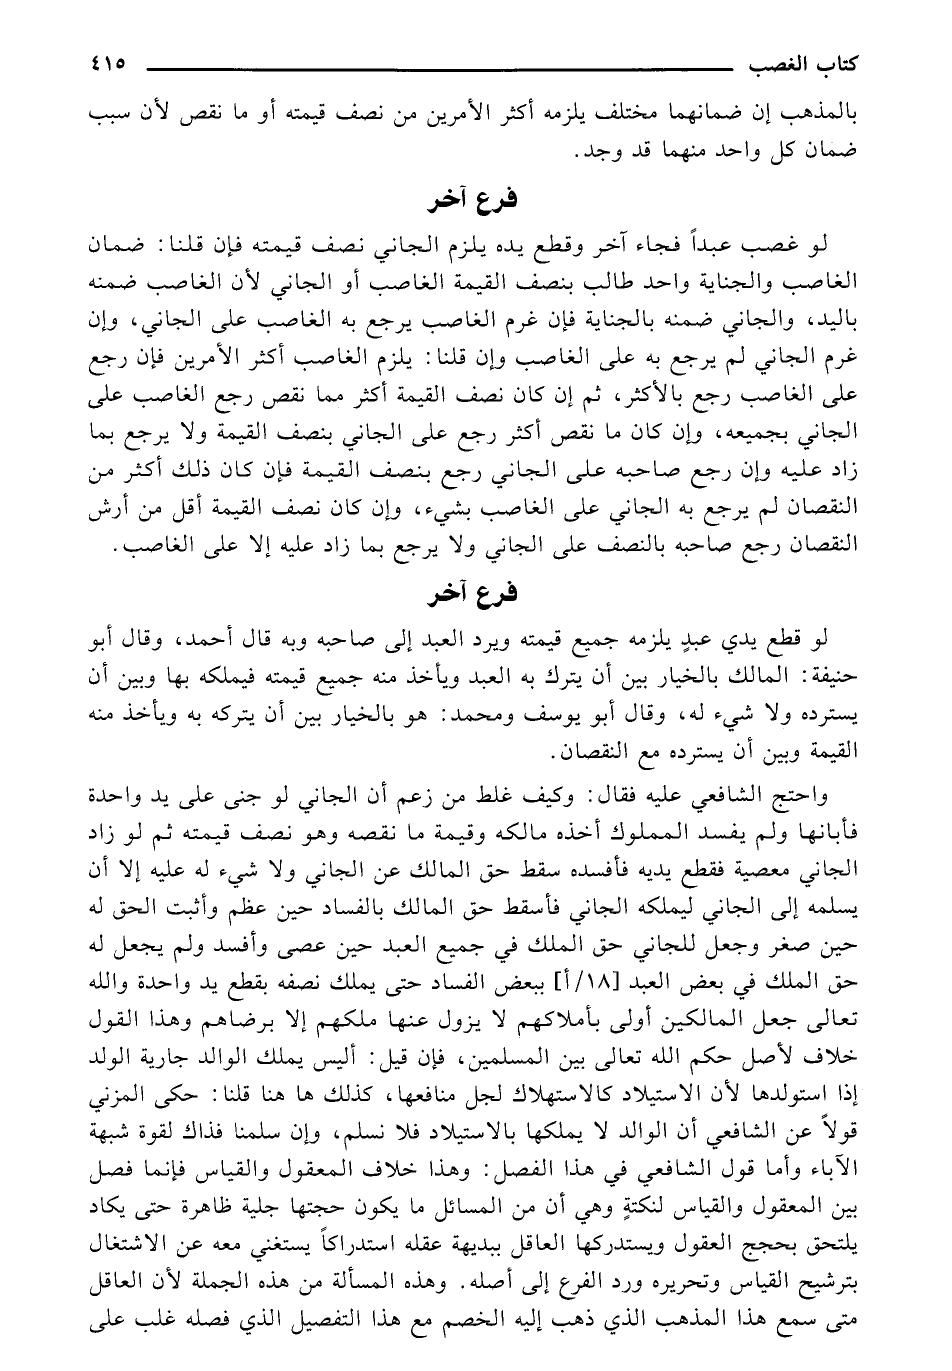 كتاب الغصب ٤١٥
بالمذهب إن ضمانهما مختلف يلزمه أكثر الأمرين من نصف قيمته أو ما نقص لأن سبب
ضمان كل واحد منهما قد وجد.
فرع آخر
لو غصب عبداً فجاء آخر وقطع يده يلزم الجاني نصف قيمته فإن قلنا: ضمان
الغاصب والجناية واحد طالب بنصف القيمة الغاصب أو الجاني لأن الغاصب ضمنه
باليد، والجاني ضمنه بالجناية فإن غرم الغاصب يرجع به الغاصب على الجاني، وإن
غرم الجاني لم يرجع به على الغاصب وإن قلنا: يلزم الغاصب أكثر الأمرين فإن رجع
على الغاصب رجع بالأكثر، ثم إن كان نصف القيمة أكثر مما نقص رجع الغاصب على
الجاني بجميعه، وإن كان ما نقص أكثر رجع على الجاني بنصف القيمة ولا يرجع بما
زاد عليه وإن رجع صاحبه على الجاني رجع بنصف القيمة فإن كان ذلك أكثر من
النقصان لم يرجع به الجاني على الغاصب بشيء، وإن كان نصف القيمة أقل من أرش
النقصان رجع صاحبه بالنصف على الجاني ولا يرجع بما زاد عليه إلا على الغاصب.
فرع آخر
لو قطع يدي عبدٍ يلزمه جميع قيمته ويرد العبد إلى صاحبه وبه قال أحمد، وقال أبو
حنيفة: المالك بالخيار بين أن يترك به العبد ويأخذ منه جميع قيمته فيملكه بها وبين أن
يسترده ولا شيء له، وقال أبو يوسف ومحمد: هو بالخيار بين أن يتركه به ويأخذ منه
القيمة وبين أن يسترده مع النقصان.
واحتج الشافعي عليه فقال: وكيف غلط من زعم أن الجاني لو جنى على يد واحدة
فأبانها ولم يفسد المملوك أخذه مالكه وقيمة ما نقصه وهو نصف قيمته ثم لو زاد
الجاني معصية فقطع يديه فأفسده سقط حق المالك عن الجاني ولا شيء له عليه إلا أن
يسلمه إلى الجاني ليملكه الجاني فأسقط حق المالك بالفساد حين عظم وأثبت الحق له
حين صغر وجعل للجاني حق الملك في جميع العبد حين عصى وأفسد ولم يجعل له
حق الملك في بعض العبد [١٨/أ] ببعض الفساد حتى يملك نصفه بقطع يد واحدة والله
تعالى جعل المالكين أولى بأملاكهم لا يزول عنها ملكهم إلا برضاهم وهذا القول
خلاف لأصل حكم الله تعالى بين المسلمين، فإن قيل: أليس يملك الوالد جارية الولد
إذا استولدها لأن الاستيلاد كالاستهلاك لجل منافعها، كذلك ها هنا قلنا: حكى المزني
قولاً عن الشافعي أن الوالد لا يملكها بالاستيلاد فلا نسلم، وإن سلمنا فذاك لقوة شبهة
الآباء وأما قول الشافعي في هذا الفصل: وهذا خلاف المعقول والقياس فإنما فصل
بين المعقول والقياس لنكتةٍ وهي أن من المسائل ما يكون حجتها جلية ظاهرة حتى يكاد
يلتحق بحجج العقول ويستدركها العاقل ببديهة عقله استدراكاً يستغني معه عن الاشتغال
بترشيح القياس وتحريره ورد الفرع إلى أصله. وهذه المسألة من هذه الجملة لأن العاقل
متى سمع هذا المذهب الذي ذهب إليه الخصم مع هذا التفصيل الذي فصله غلب على